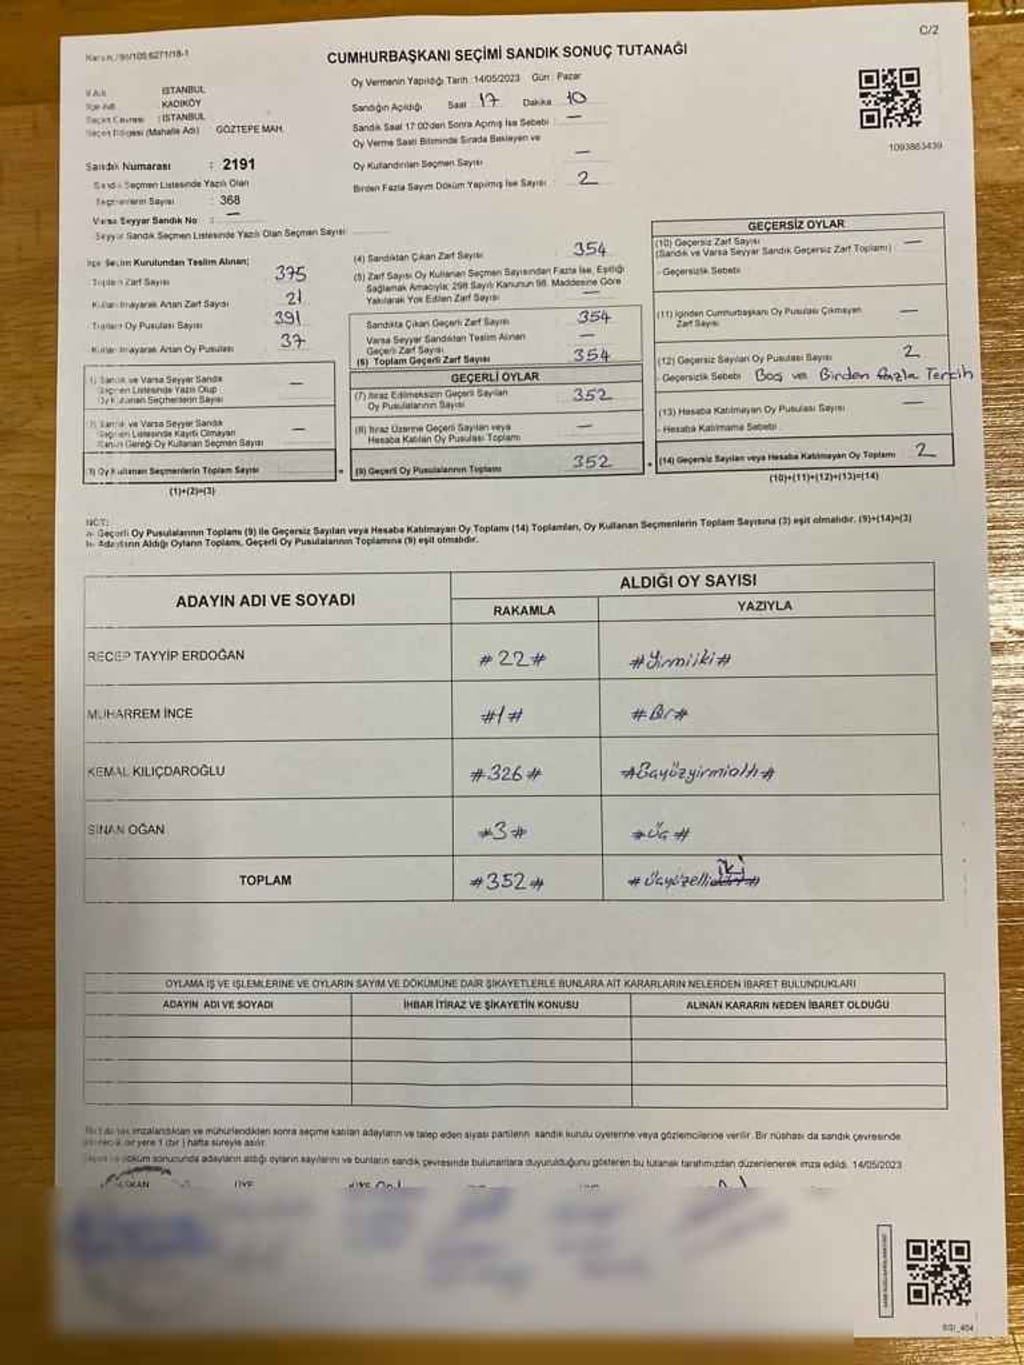 C/2
CUMHURBAŞKANI SEÇİMİ SANDIK SONUÇ TUTANAĞI
İSTANBUL
KADIKÖY
: İSTANBUL
Seçim Bölgesi (Mahalle Adı) GÖZTEPE MAH.
Sandık Numarası : 2191
Sandık Seçmen Listesinde Yazılı Olan
Seçmenlerin Sayısı : 368
Varsa Seyyar Sandık No : —
Seyyar Sandık Seçmen Listesinde Yazılı Olan Seçmen Sayısı:
Oy Vermenin Yapıldığı Tarih : 14/05/2023 Gün : Pazar
Sandığın Açıldığı Saat 17 Dakika 10
Sandık Saat 17:00'den Sonra Açılmış İse Sebebi : —
Oy Verme Saati Bitiminde Sırada Bekleyen ve
Oy Kullandırılan Seçmen Sayısı —
Birden Fazla Sayım Döküm Yapılmış İse Sayısı : 2
1093863439
İlçe Seçim Kurulundan Teslim Alınan;
Toplam Zarf Sayısı 375
Kullanılmayarak Artan Zarf Sayısı 21
Toplam Oy Pusulası Sayısı 391
Kullanılmayarak Artan Oy Pusulası 37
1) Sandık ve Varsa Seyyar Sandık
Seçmen Listesinde Yazılı Olup
Oy Kullanan Seçmenlerin Sayısı —
2) Sandık ve Varsa Seyyar Sandık
Seçmen Listesinde Kayıtlı Olmayan
Kanun Gereği Oy Kullanan Seçmen Sayısı —
(3) Oy Kullanan Seçmenlerin Toplam Sayısı =
(1)+(2)=(3)
(4) Sandıktan Çıkan Zarf Sayısı 354
(5) Zarf Sayısı Oy Kullanan Seçmen Sayısından Fazla İse, Eşitliği
Sağlamak Amacıyla; 298 Sayılı Kanunun 98. Maddesine Göre
Yakılarak Yok Edilen Zarf Sayısı —
Sandıkta Çıkan Geçerli Zarf Sayısı 354
Varsa Seyyar Sandıktan Teslim Alınan
Geçerli Zarf Sayısı —
(6) Toplam Geçerli Zarf Sayısı 354
GEÇERLİ OYLAR
(7) İtiraz Edilmeksizin Geçerli Sayılan
Oy Pusulalarının Sayısı 352
(8) İtiraz Üzerine Geçerli Sayılan veya
Hesaba Katılan Oy Pusulası Toplamı —
(9) Geçerli Oy Pusulalarının Toplamı 352 +
GEÇERSİZ OYLAR
(10) Geçersiz Zarf Sayısı —
(Sandık ve Varsa Seyyar Sandık Geçersiz Zarf Toplamı)
- Geçersizlik Sebebi
(11) İçinden Cumhurbaşkanı Oy Pusulası Çıkmayan
Zarf Sayısı —
(12) Geçersiz Sayılan Oy Pusulası Sayısı 2
- Geçersizlik Sebebi Boş ve Birden fazla Tercih
(13) Hesaba Katılmayan Oy Pusulası Sayısı —
- Hesaba Katılmama Sebebi
(14) Geçersiz Sayılan veya Hesaba Katılmayan Oy Toplamı 2
(10)+(11)+(12)+(13)=(14)
NOT:
a- Geçerli Oy Pusulalarının Toplamı (9) ile Geçersiz Sayılan veya Hesaba Katılmayan Oy Toplamı (14) Toplamları, Oy Kullanan Seçmenlerin Toplam Sayısına (3) eşit olmalıdır. (9)+(14)=(3)
b- Adayların Aldığı Oyların Toplamı, Geçerli Oy Pusulalarının Toplamına (9) eşit olmalıdır.
ADAYIN ADI VE SOYADI
ALDIĞI OY SAYISI
RAKAMLA YAZIYLA
RECEP TAYYİP ERDOĞAN #22# #Yirmiiki#
MUHARREM İNCE #1# #Bir#
KEMAL KILIÇDAROĞLU #326# #Üçyüzyirmialtı#
SİNAN OĞAN #3# #Üç#
TOPLAM #352# #Üçyüzelli iki#
OYLAMA İŞ VE İŞLEMLERİNE VE OYLARIN SAYIM VE DÖKÜMÜNE DAİR ŞİKAYETLERLE BUNLARA AİT KARARLARIN NELERDEN İBARET BULUNDUKLARI
ADAYIN ADI VE SOYADI İHBAR İTİRAZ VE ŞİKAYETİN KONUSU ALINAN KARARIN NEDEN İBARET OLDUĞU
imzalandıktan ve mühürlendikten sonra seçime katılan adayların ve talep eden siyasi partilerin sandık kurulu üyelerine veya gözlemcilerine verilir. Bir nüshası da sandık çevresinde
bir yere 1 (bir) hafta süreyle asılır.
döküm sonucunda adayların aldığı oyların sayılarını ve bunların sandık çevresinde bulunanlara duyurulduğunu gösteren bu tutanak tarafımızdan düzenlenerek imza edildi. 14/05/2023